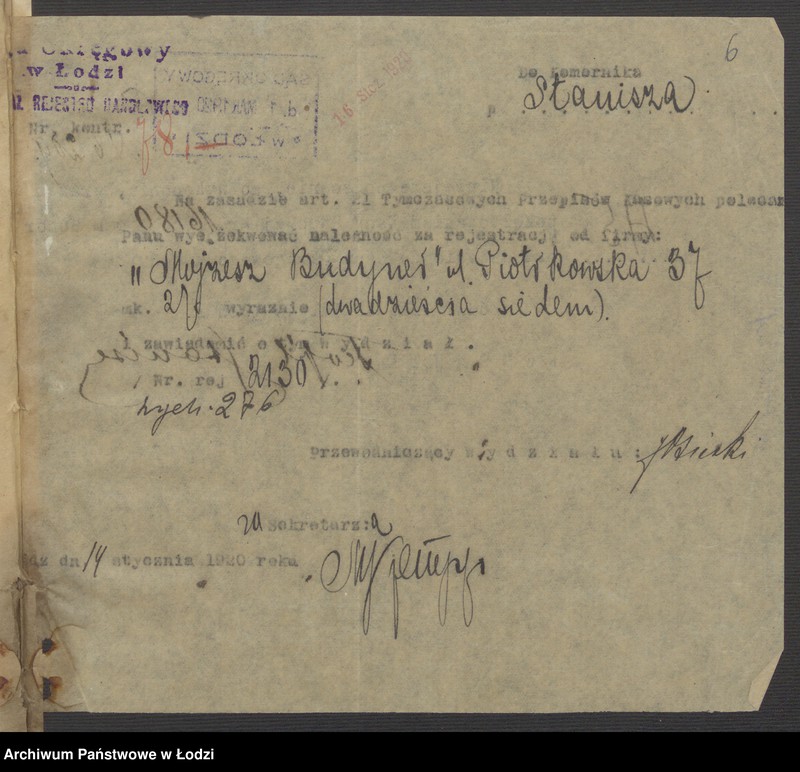 6
Okręgowy
w Łodzi
REJESTRU HANDLOWEGO
Nr. kontr.
16 STYCZ 1920
Do Komornika
p Stanisza
Na zasadzie art. 21 Tymczasowych Przepisów Kasowych polecam
Panu wyegzekwować należność za rejentrację od firmy:
"Mojżesz Budyner" ul. Piotrkowska 37
mk. 27 wyraźnie (dwadzieścia siedem).
i zawiadomić o tym wydział.
Nr. rej 2130
wych. 276
Przewodniczący Wydziału:
za Sekretarz:a
dn 14 stycznia 1920 roku
Archiwum Państwowe w Łodzi